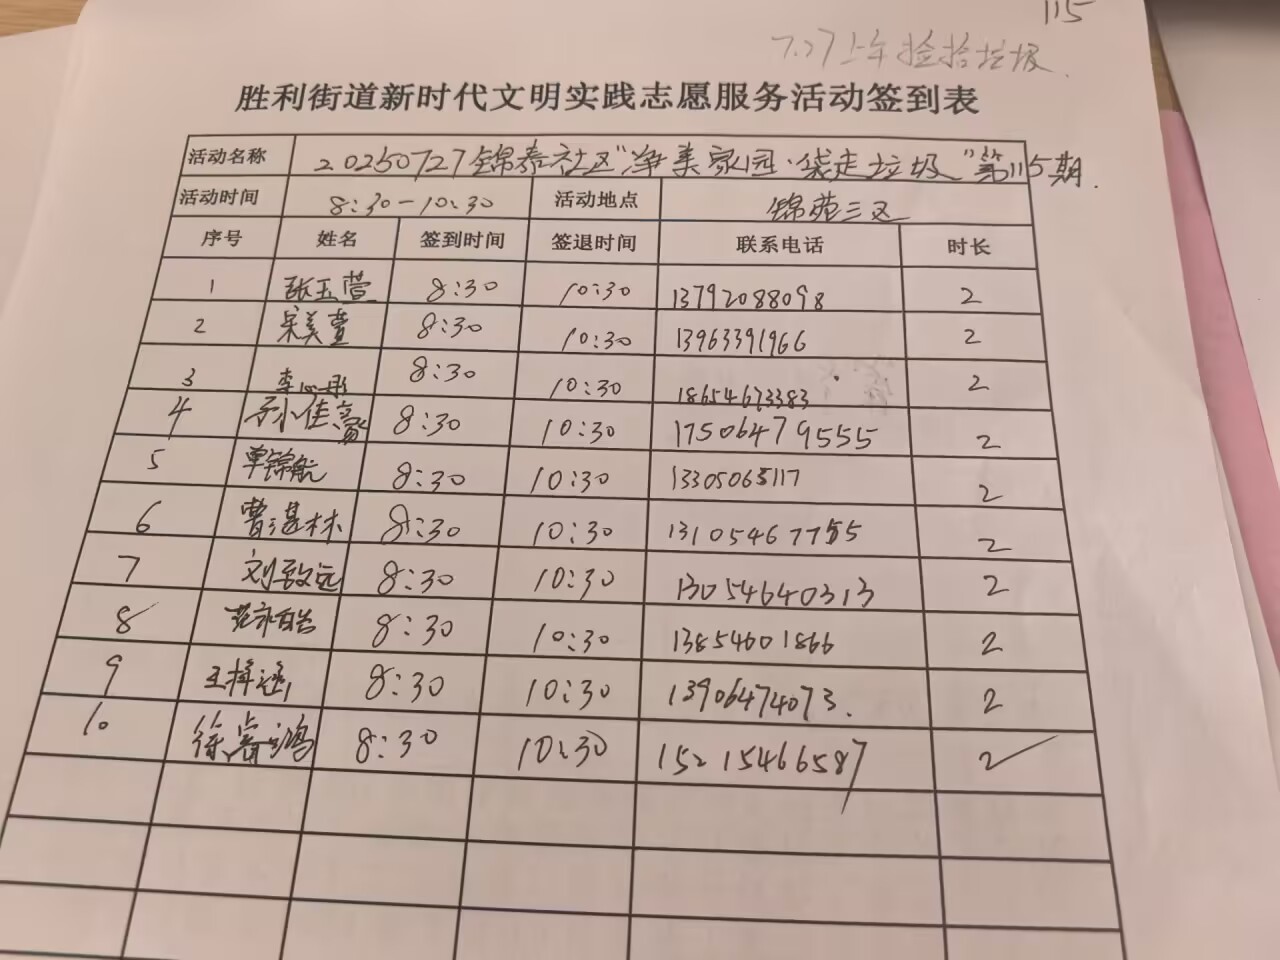 115
7.27上午捡拾垃圾.
胜利街道新时代文明实践志愿服务活动签到表
活动名称 20250727锦泰社区"净美家园·袋走垃圾"第115期.
活动时间 8:30-10:30 活动地点 锦苑三区
序号 姓名 签到时间 签退时间 联系电话 时长
1 张玉萱 8:30 10:30 13792088098 2
2 宋美萱 8:30 10:30 13963391966 2
3 李心彤 8:30 10:30 18654673383 2
4 8:30 10:30 17506479555 2
5 单锦航 8:30 10:30 13305065117 2
6 曹湛林 8:30 10:30 13105467755 2
7 刘致远 8:30 10:30 13054640313 2
8 8:30 10:30 13854601866 2
9 王梓涵 8:30 10:30 13906474073. 2
10 徐睿鸿 8:30 10:30 15215466587 2